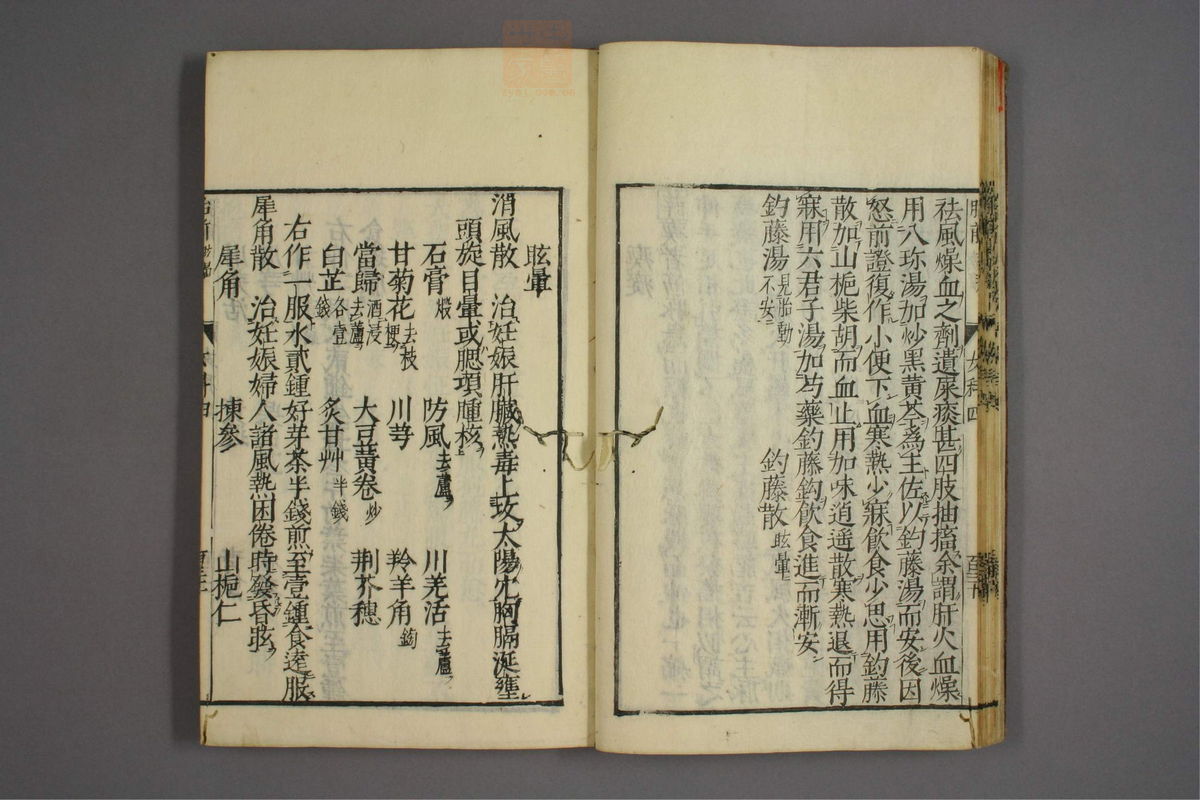 祛風燥血之劑遺尿痰甚四肢抽搐余謂肝火血燥
用八珎湯加炒黑黄芩爲主佐以鈎藤湯而安後因
怒前證復作小便下血寒熱少寐飲食少思用鈎藤
散加山梔柴胡而血止用加味逍遥散寒熱退而得
寐用六君子湯加芍藥鈎藤鈎飲食進而漸安
鈎藤湯 見胎動不安 鈎藤散 眩暈
眩暈
消風散 治妊娠肝臟熱毒上攻太陽穴胸膈涎壅
頭旋目暈或腮項腫核
石膏 煅 防風 去蘆 川羌活 去蘆
甘菊花 去枝梗 川芎 羚羊角 鎊
當歸 酒浸去蘆 大豆黃卷 炒 荆芥穗
白芷 各壹錢 炙甘艸 半錢
右作一服水貳鍾好芽茶半錢煎至壹鍾食遠服
犀角散 治妊娠婦人諸風熱困倦時發昏眩
犀角 揀參 山梔仁
女科四